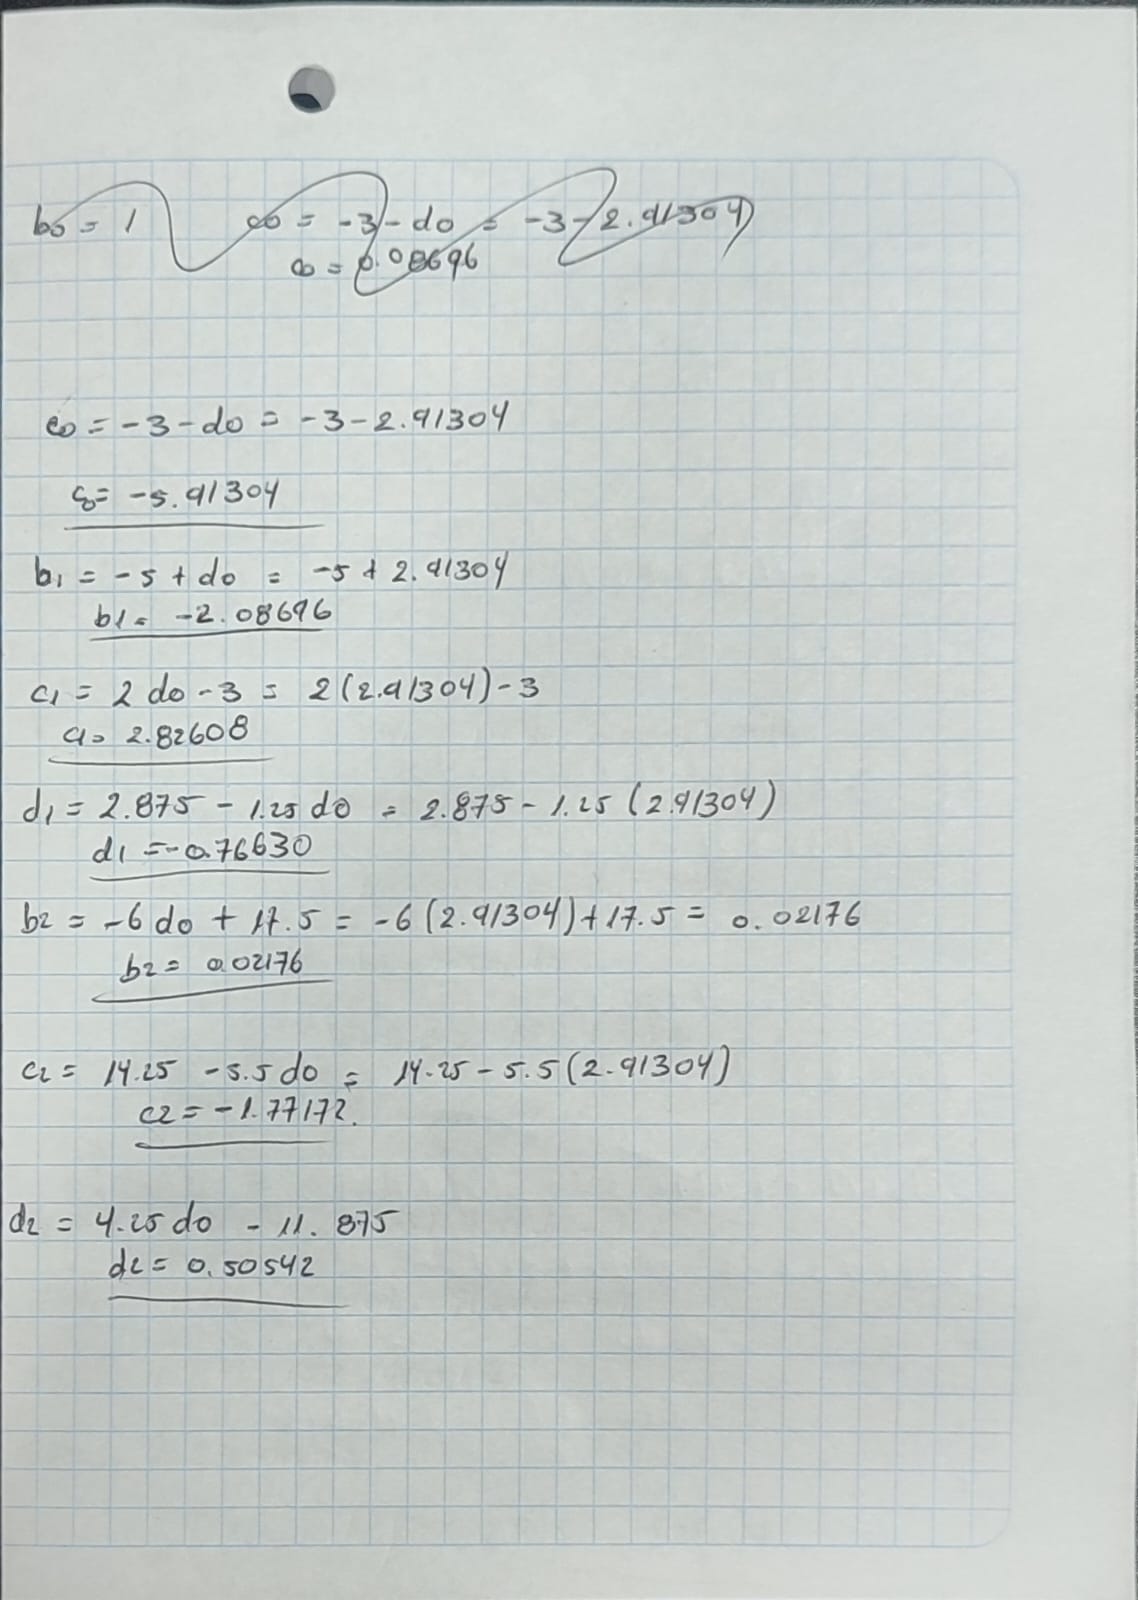 b0 = 1 c0 = -3 - do = -3 - 2.91304
c0 = 0.08696
c0 = -3 - do = -3 - 2.91304
c0 = -5.91304
b1 = -5 + do = -5 + 2.91304
b1 = -2.08696
c1 = 2 do - 3 = 2(2.91304) - 3
c1 = 2.82608
d1 = 2.875 - 1.25 do = 2.875 - 1.25 (2.91304)
d1 = -0.76630
b2 = -6 do + 17.5 = -6 (2.91304) + 17.5 = 0.02176
b2 = 0.02176
c2 = 14.25 - 5.5 do = 14.25 - 5.5 (2.91304)
c2 = -1.77172.
d2 = 4.25 do - 11.875
d2 = 0.50542